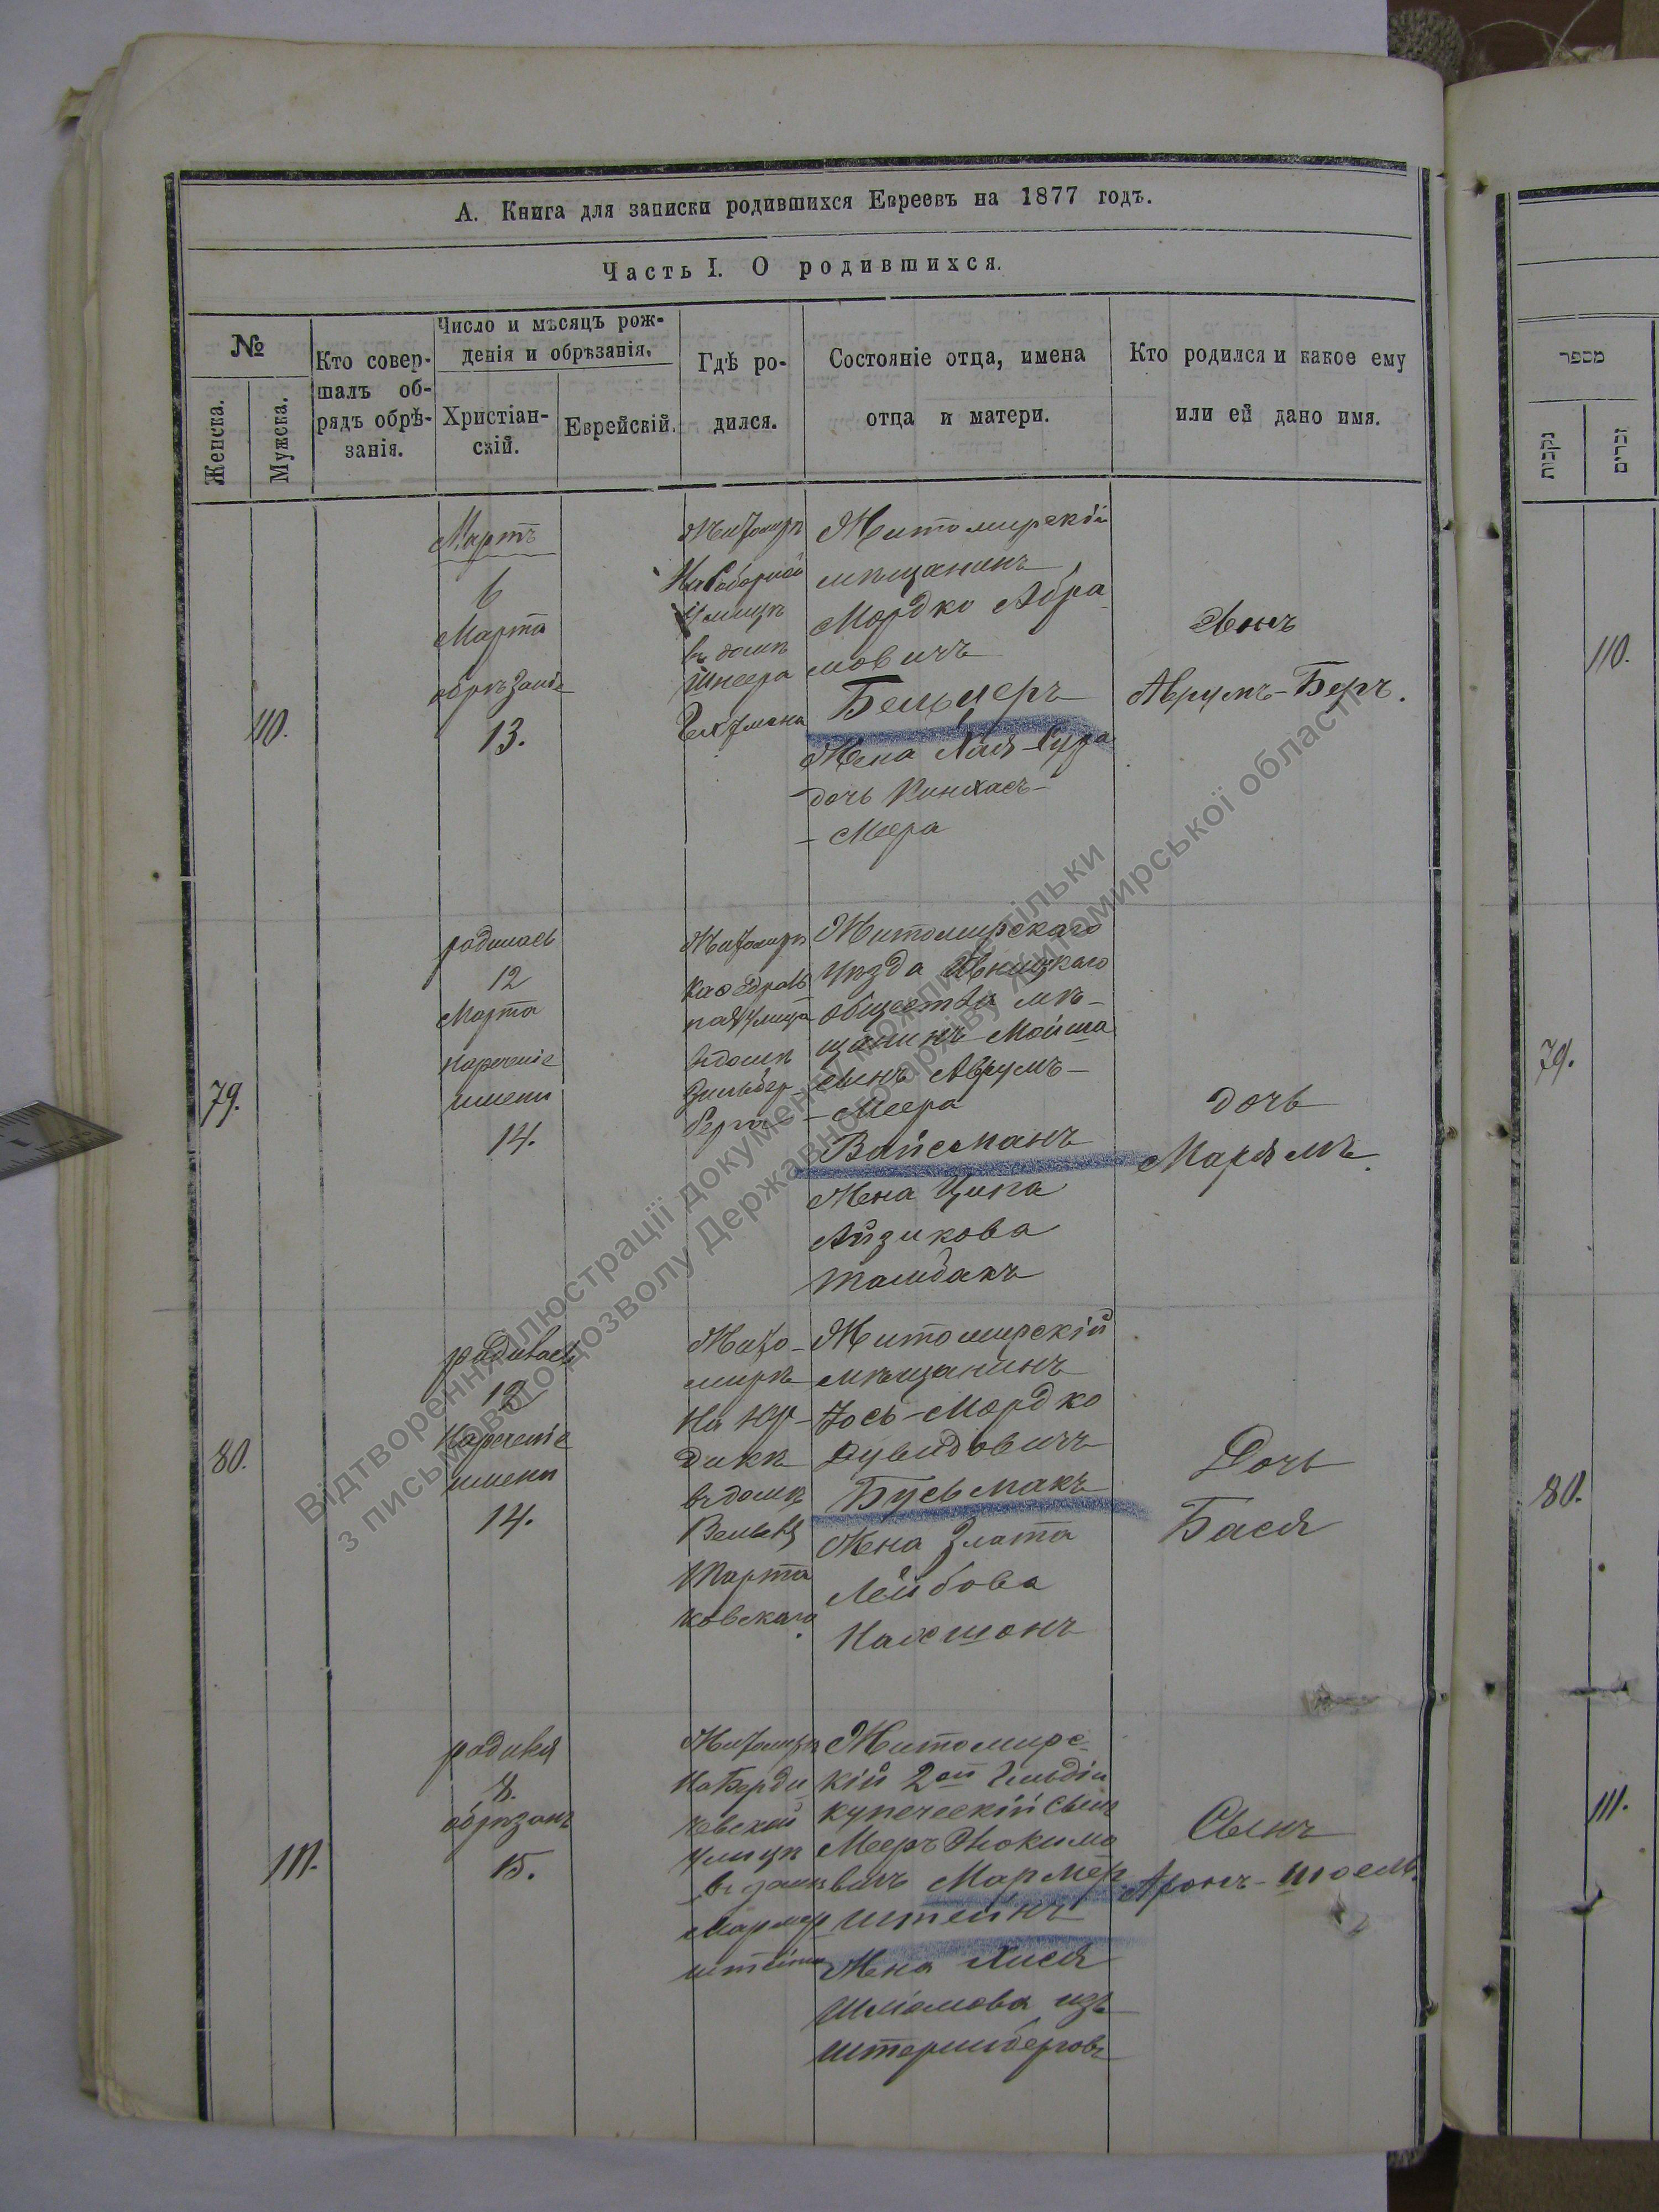 А. Книга для записки родившихся Евреевъ на 1877 годъ.
Часть I. О родившихся.
№
Женска.
Мужска.
Кто совер-
шалъ об-
рядъ обрѣ-
занія.
Число и мѣсяцъ рож-
денія и обрѣзанія.
Христіан-
скій.
Еврейскій.
Гдѣ ро-
дился.
Состояніе отца, имена
отца и матери.
Кто родился и какое ему
или ей дано имя.
110.
Мартъ
6
Марта
13.
Житомиръ
На Соборной
улицѣ
въ домѣ
Шнеера
Житомирскій
мѣщанинъ
Мордко Абра-
мовичъ
Бельцеръ
Жена Хая-Сура
дочь Пинхасъ-
-Меера
Аврумъ-Беръ.
79.
родилась
12
Марта
нареченіе
имени
14.
Житомиръ
улица
въ домѣ
Житомирскаго
уѣзда Ивницкаго
общества мѣ-
щанинъ Мойша
сынъ Аврумъ-
-Меера
Вайсманъ
Жена Ципа
Айзикова
дочь
Марямъ.
80.
родилась
12
Нареченіе
имени
14.
Жито-
миръ
въ домѣ
Житомирскій
мѣщанинъ
Іось-Мордко
Дувидовичъ
Бусьмакъ
Жена Злата
Лейбова
Дочь
Бася
111.
родился
8.
обрѣзанъ
15.
Житомиръ
На Берди-
чевской
улицѣ
Мармер
штейна
Житомирс-
кій 2ой гильдіи
купеческій сынъ
Мееръ
вичъ Мармер
штейнъ
Жена Хися
Шліомова изъ
Штеринберговъ
Сынъ
Аронъ-Шоель.
מספר
נקבות
זכרים
110.
79.
80.
111.
Відтворення ілюстрації документу можливе тільки
з письмового дозволу Державного архіву Житомирської області